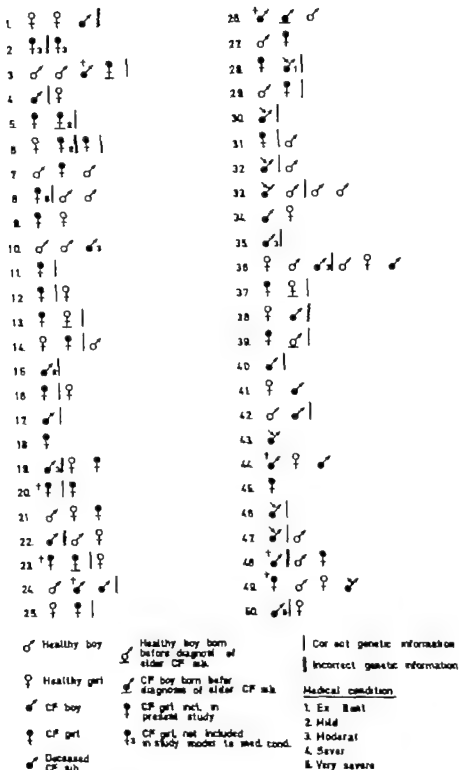 1.
2
3
4.
5.
6
7
8.
9.
10.
11.
12
13.
14.
15
16
17.
18
19.
20.
21
22.
23.
24.
25.
26.
27.
28.
29.
30.
31
32.
33.
34.
35.
36
37.
38
39.
40.
41.
42.
43.
44.
45.
46.
47.
48.
49.
50.
Healthy boy
Healthy girl
CF boy
CF girl
Deceased
CF sib.
Healthy boy born
before diagnosis of
elder CF sib.
CF boy born
diagnosis of elder CF sib.
CF girl incl. in
present study
CF girl, not included
in study med. cond.
genetic information
Incorrect genetic information
Medical condition
1.
2. Mild
3.
4.
5. Very severe